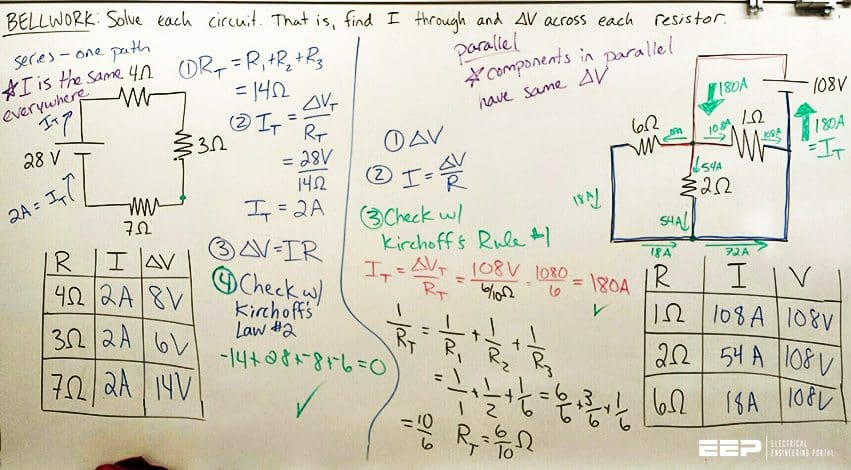 BELLWORK: Solve each circuit. That is, find I through and ΔV across each resistor.
series - one path
* I is the same
everywhere
4Ω
I_T ↑
28 V
3Ω
2A = I_T ↑
7Ω
① R_T = R_1 + R_2 + R_3
= 14Ω
② I_T = ΔV_T / R_T
= 28V / 14Ω
I_T = 2A
③ ΔV = IR
④ Check w/
Kirchoff's
Law #2
-14 + 28 + -8 + -6 = 0
✓
R | I | ΔV
4Ω | 2A | 8V
3Ω | 2A | 6V
7Ω | 2A | 14V
parallel
* components in parallel
have same ΔV
① ΔV
② I = ΔV / R
③ Check w/
Kirchoff's Rule #1
I_T = ΔV_T / R_T = 108V / 6/10Ω = 1080 / 6 = 180A
✓
1/R_T = 1/R_1 + 1/R_2 + 1/R_3
= 1/1 + 1/2 + 1/6 = 6/6 + 3/6 + 1/6
= 10/6 R_T = 6/10 Ω
180A
108V
6Ω
108A
1Ω
108A
180A
= I_T
54A
2Ω
18A
54A
18A
72A
R | I | V
1Ω | 108A | 108V
2Ω | 54A | 108V
6Ω | 18A | 108V
EEP
ELECTRICAL
ENGINEERING PORTAL